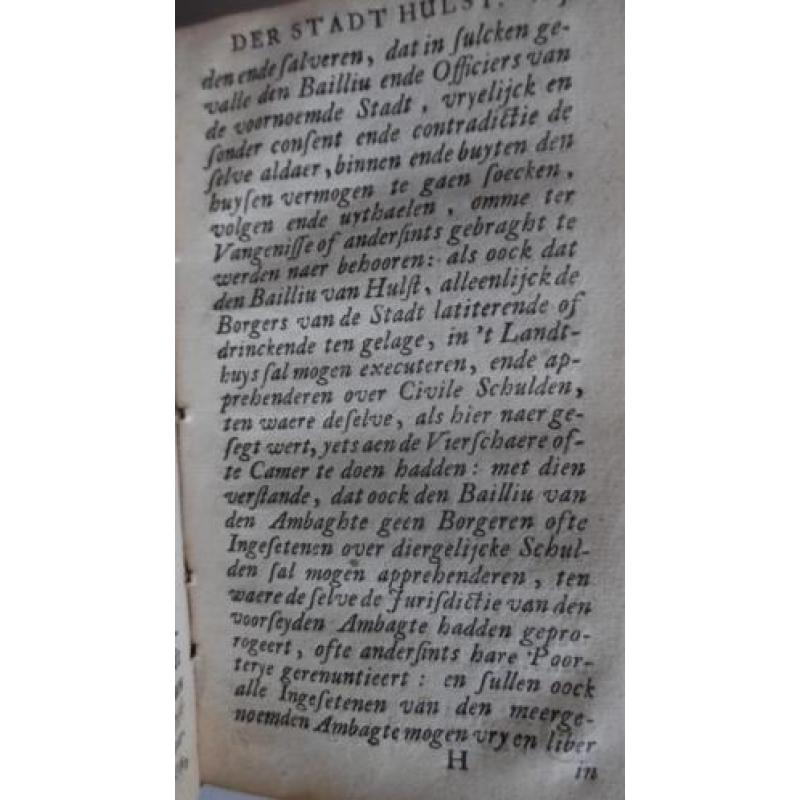 DER STADT HULST.
den ende ſalveren, dat in ſulcken ge-
valle den Bailliu ende Officiers van
de voornoemde Stadt, vryelijck en
ſonder conſent ende contradictie de
ſelve aldaer, binnen ende buyten den
huyſen vermogen te gaen ſoecken,
volgen ende uythaelen, omme ter
Vangeniſſe of anderſints gebraght te
werden naer behooren: als oock dat
den Bailliu van Hulſt, alleenlijck de
Borgers van de Stadt latiterende of
drinckende ten gelage, in 't Landt-
huys ſal mogen executeren, ende ap-
prehenderen over Civile Schulden,
ten waere deſelve, als hier naer ge-
ſegt wert, yets aen de Vierſchaere of-
te Camer te doen hadden: met dien
verſtande, dat oock den Bailliu van
den Ambaghte geen Borgeren ofte
Ingeſetenen over diergelijcke Schul-
den ſal mogen apprehenderen, ten
waere de ſelve de Juriſdictie van den
voorſeyden Ambagte hadden gepro-
rogeert, ofte anderſints hare Poor-
terye gerenuntieert: en ſullen oock
alle Ingeſetenen van den meerge-
noemden Ambagte mogen vry en liber
H
in